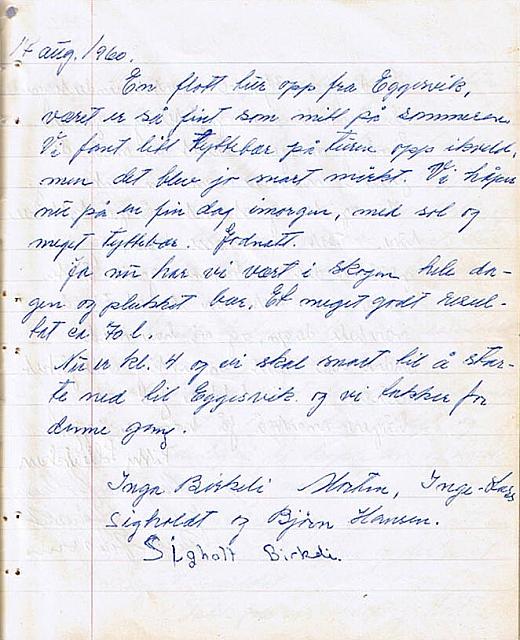 17 aug. 1960.
En flott tur opp fra Eggesvik,
været er så fint som mitt på sommeren.
Vi fant litt tyttebær på turen opp ikveld,
men det blev jo snart mørkt. Vi håper
nu på en fin dag imorgen, med sol og
meget tyttebær. Godnatt.
Ja nu har vi vært i skogen hele da-
gen og plukket bær. Et meget godt resul-
tat ca 70 l.
Nu er kl. 4 og vi skal snart til å star-
te ned til Eggesvik og vi takker for
denne gang.
Inga Birkeli Morten, Inge-Lars
Sigholdt og Bjørn Hansen.
Sigholt Birkeli.